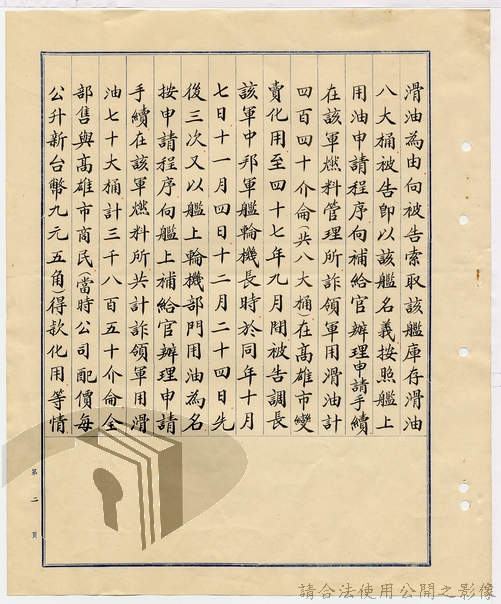 滑油為由向被告索取該艦庫存滑油
八大桶被告即以該艦名義按照艦上
用油申請程序向補給官辦理申請手續
在該軍燃料管理所詐領軍用滑油計
四百四十介侖(共八大桶)在高雄市變
賣化用至四十七年九月間被告調長
該軍中邦軍艦輪機長時於同年十月
七日十一月四日十二月二十四日先
後三次又以艦上輪機部門用油為名
按申請程序向艦上補給官辦理申請
手續在該軍燃料所共計詐領軍用滑
油七十大桶計三千八百五十介侖全
部售與高雄市商民(當時公司配價每
公升新台幣九元五角)得款化用等情
第二頁
請合法使用公開之影像